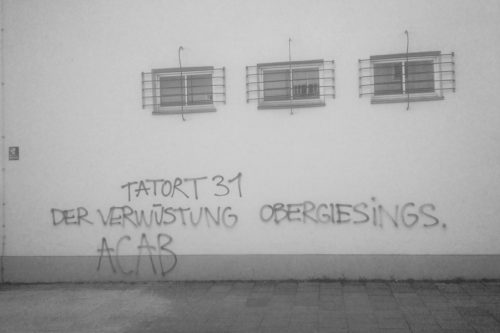 TATORT 31
DER VERWÜSTUNG OBERGIESiNGS.
ACAB